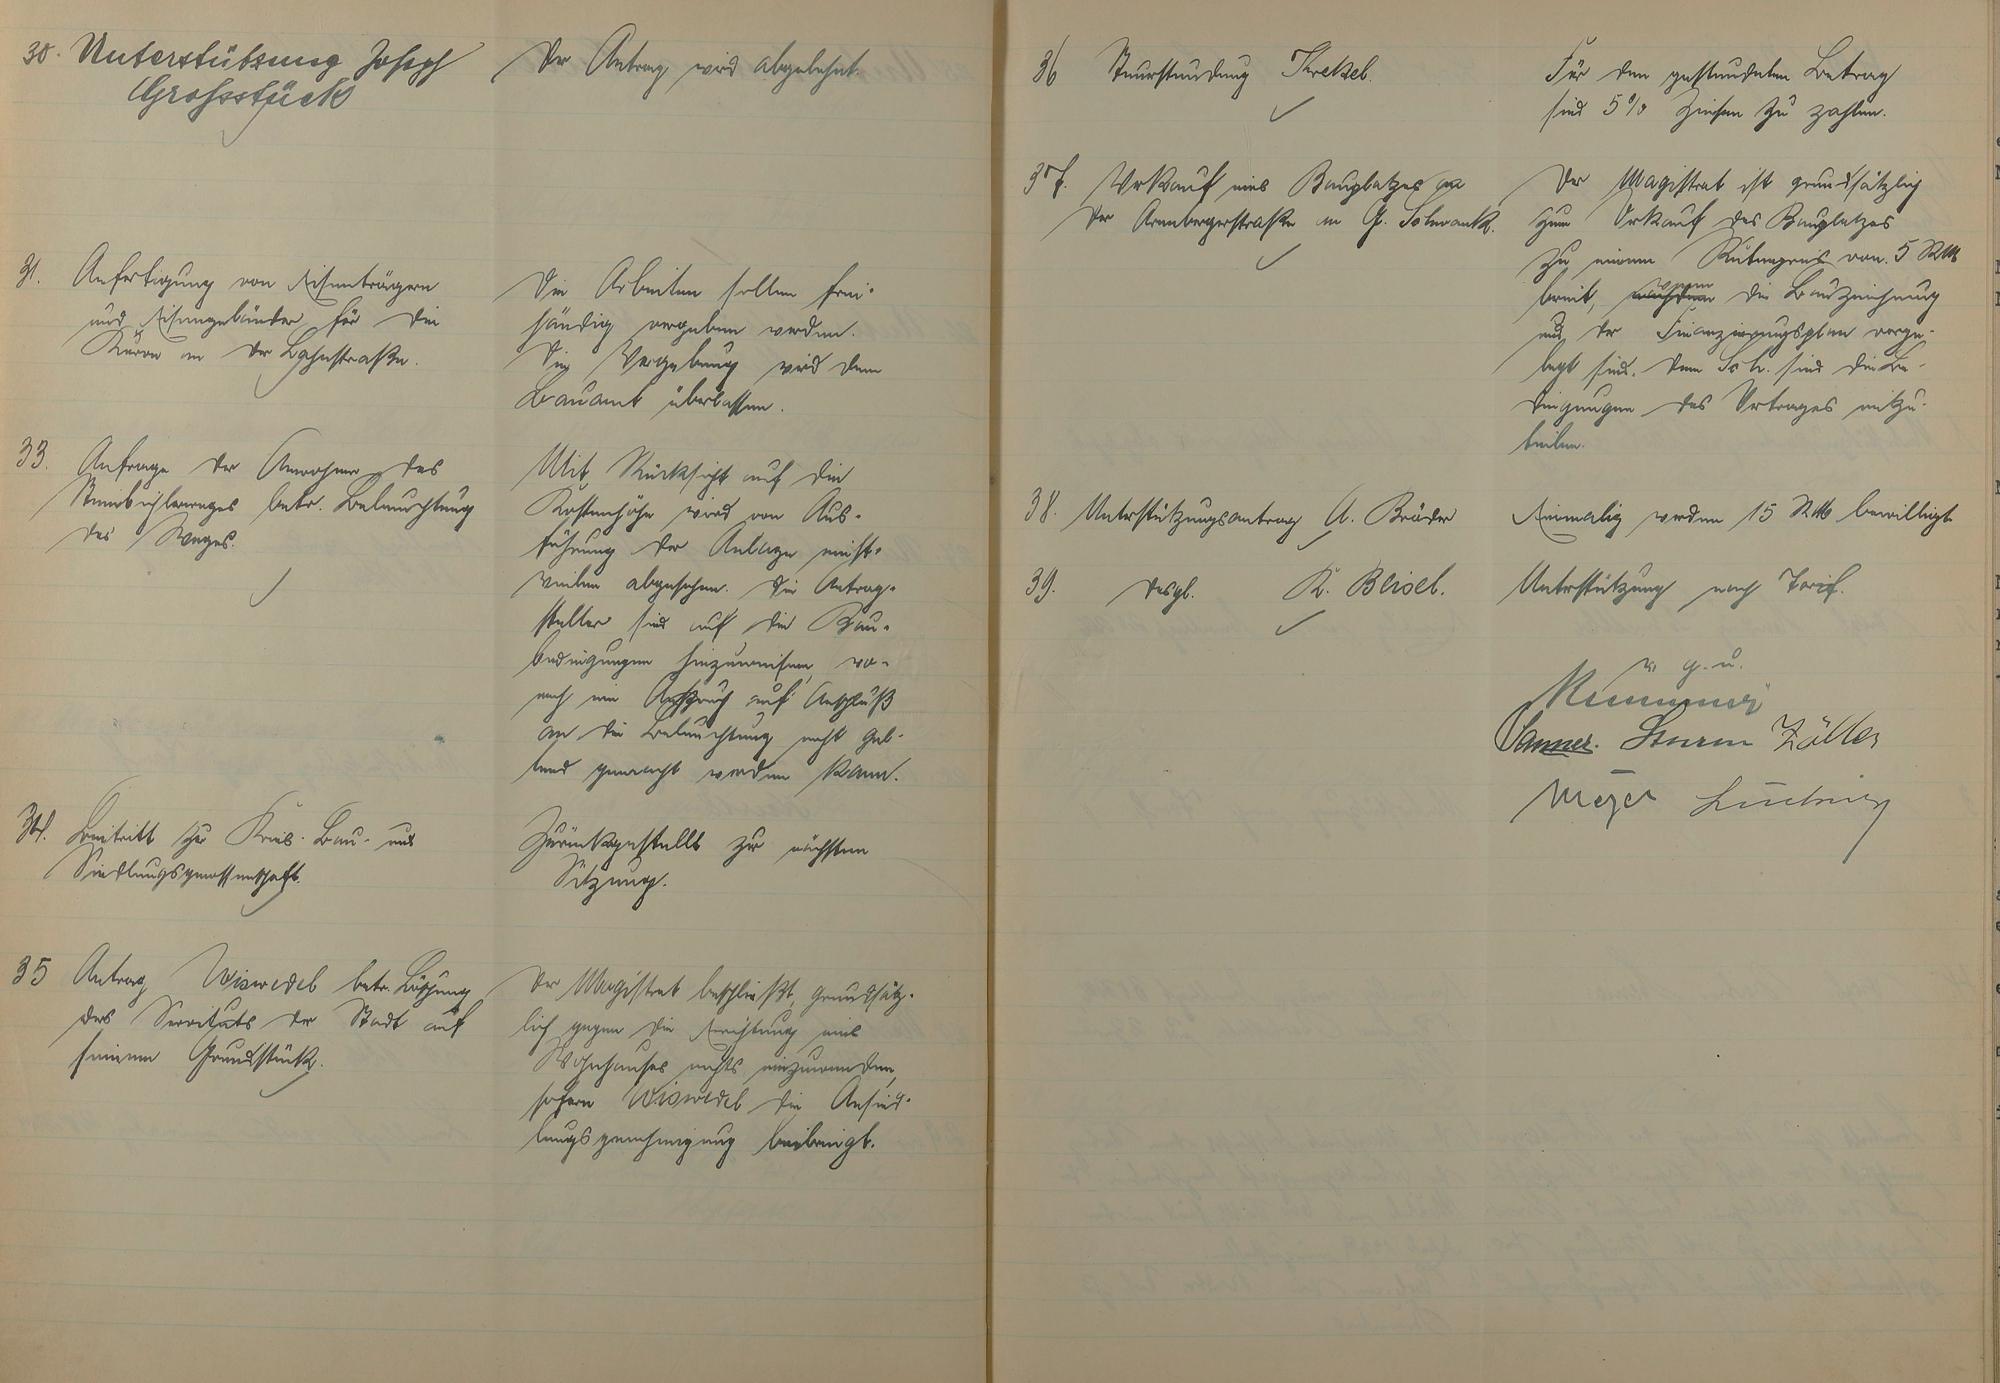 30. Unterstützung Joseph
Grossstück
Der Antrag wird abgelehnt.
31. Anfertigung von Eisenträgern
und Eisengeländer für die
Kurve in der Bahnstraße.
Die Arbeiten sollen frei-
händig vergeben werden.
Die Vergebung wird dem
Bauamt überlassen.
33. Anfrage der Anwohner des
Steinbühlerweges betr. Beleuchtung
des Weges.
Mit Rücksicht auf die
Kostenhöhe wird von Aus-
führung der Anlage einst-
weilen abgesehen. Die Antrag-
steller sind auf die Bau-
bedingungen hinzuweisen, wo-
nach ein Anspruch auf Anschluß
an die Beleuchtung nicht gel-
tend gemacht werden kann.
34. Beitritt zur Kreis-Bau- und
Siedlungsgenossenschaft.
Zurückgestellt zur nächsten
Sitzung.
35 Antrag Wiswedel betr. Löschung
des Servituts der Stadt auf
seinem Grundstück.
Der Magistrat beschließt, grundsätz-
lich gegen die Errichtung eines
Wohnhauses nichts einzuwenden,
sofern Wiswedel die Ansied-
lungsgenehmigung beibringt.
36 Steuerstundung Threkel.
Für den gestundeten Betrag
sind 5% Zinsen zu zahlen.
37. Verkauf eines Bauplatzes an
der Arnsbergerstraße an G. Schwank.
Der Magistrat ist grundsätzlich
zum Verkauf des Bauplatzes
zu einem Rutenpreis von 5 RM
bereit, wenn die Bauzeichnung
und der Finanzierungsplan vorge-
legt sind. Dem Sch. sind die Be-
dingungen des Vertrages mitzu-
teilen.
38. Unterstützungsantrag A. Bräder
Einmalig werden 15 RM bewilligt
39. desgl. K. Beisel.
Unterstützung nach Tarif.
v. g. u.
Sanner. Sturm Zöller
Meyer Ludwig